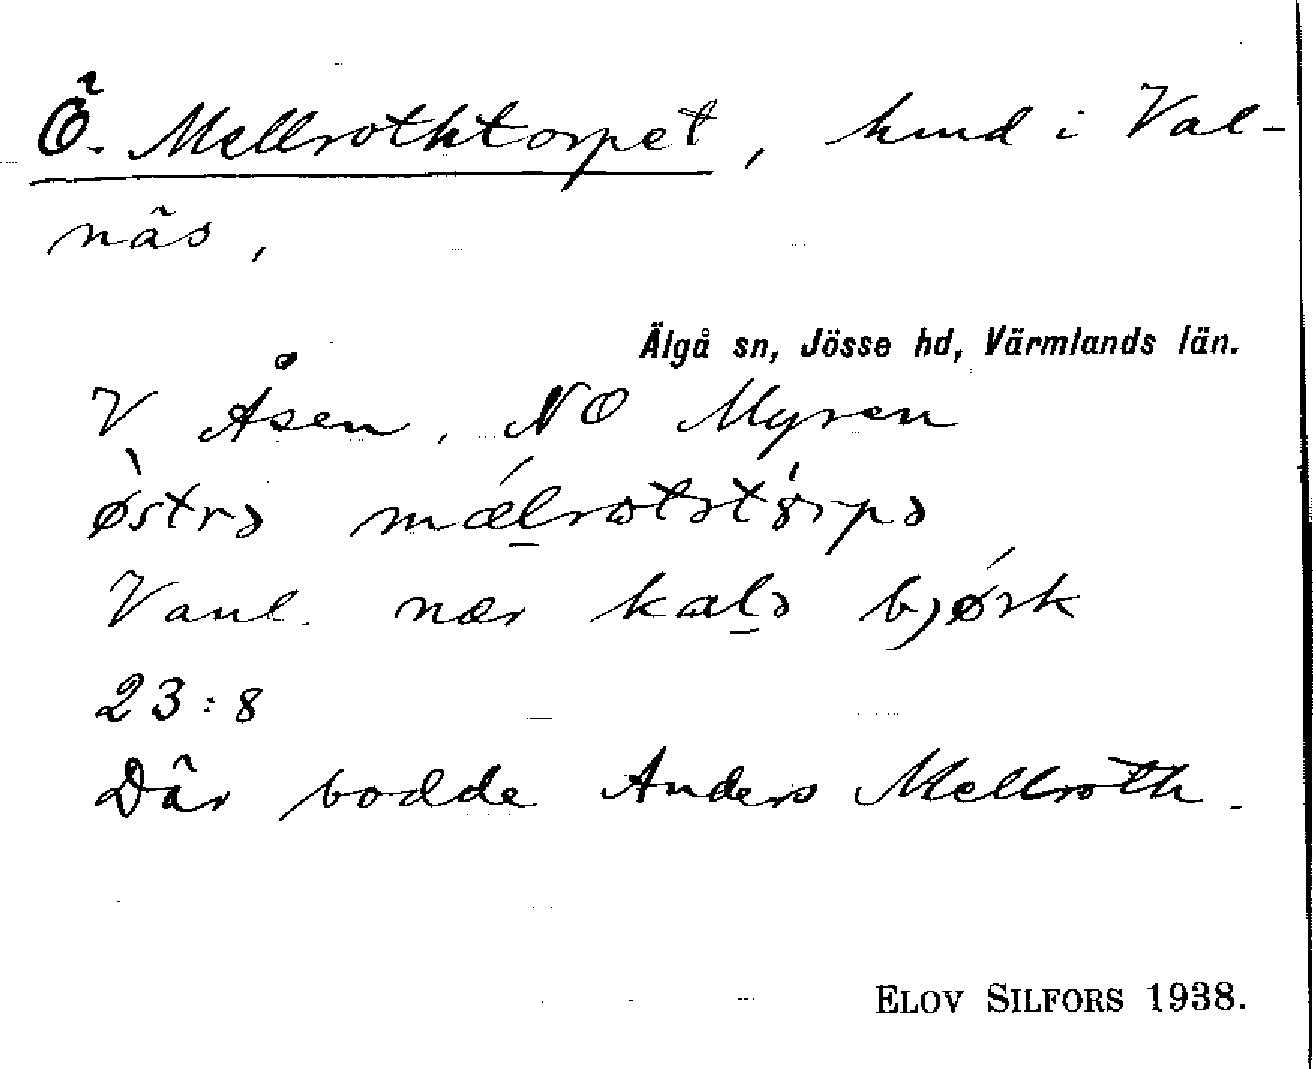 Ö. Mellrothtorpet, hmd i Val-
näs,
Älgå sn, Jösse hd, Värmlands län.
V Åsen, NO Myren
østrə mæl̠rotstørpə
Vanl. nær kal̠ə bjørk
23:8
Där bodde Anders Mellroth.
ELOV SILFORS 1938.